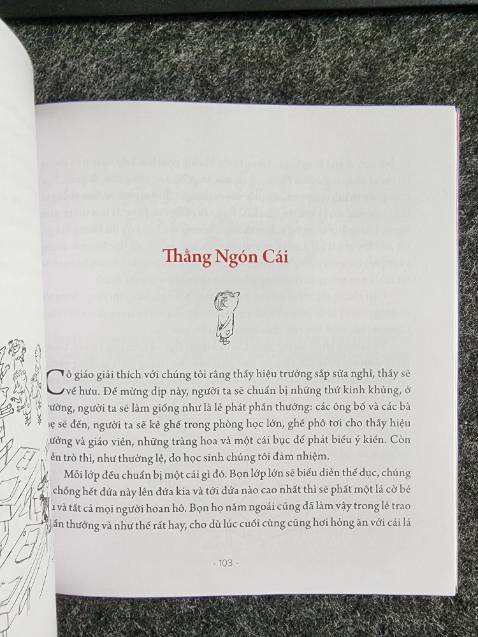 Thằng Ngón Cái
Cô giáo giải thích với chúng tôi rằng thầy hiệu trưởng sắp sửa nghỉ, thầy sẽ
về hưu. Để mừng dịp này, người ta sẽ chuẩn bị những thứ kinh khủng, ở
ường, người ta sẽ làm giống như là lễ phát phần thưởng: các ông bố và các bà
ẹ sẽ đến, người ta sẽ kê ghế trong phòng học lớn, ghế phô tơi cho thầy hiệu
ưởng và giáo viên, những tràng hoa và một cái bục để phát biểu ý kiến. Còn
ễn trò thì, như thường lệ, do học sinh chúng tôi đảm nhiệm.
Mỗi lớp đều chuẩn bị một cái gì đó. Bọn lớp lớn sẽ biểu diễn thể dục, chúng
chồng hết đứa này lên đứa kia và tới đứa nào cao nhất thì sẽ phất một lá cờ bé
và tất cả mọi người hoan hô. Bọn họ năm ngoái cũng đã làm vậy trong lễ trao
ần thưởng và như thế rất hay, cho dù lúc cuối cùng cũng hơi hỏng ăn với cái lá
- 103 -